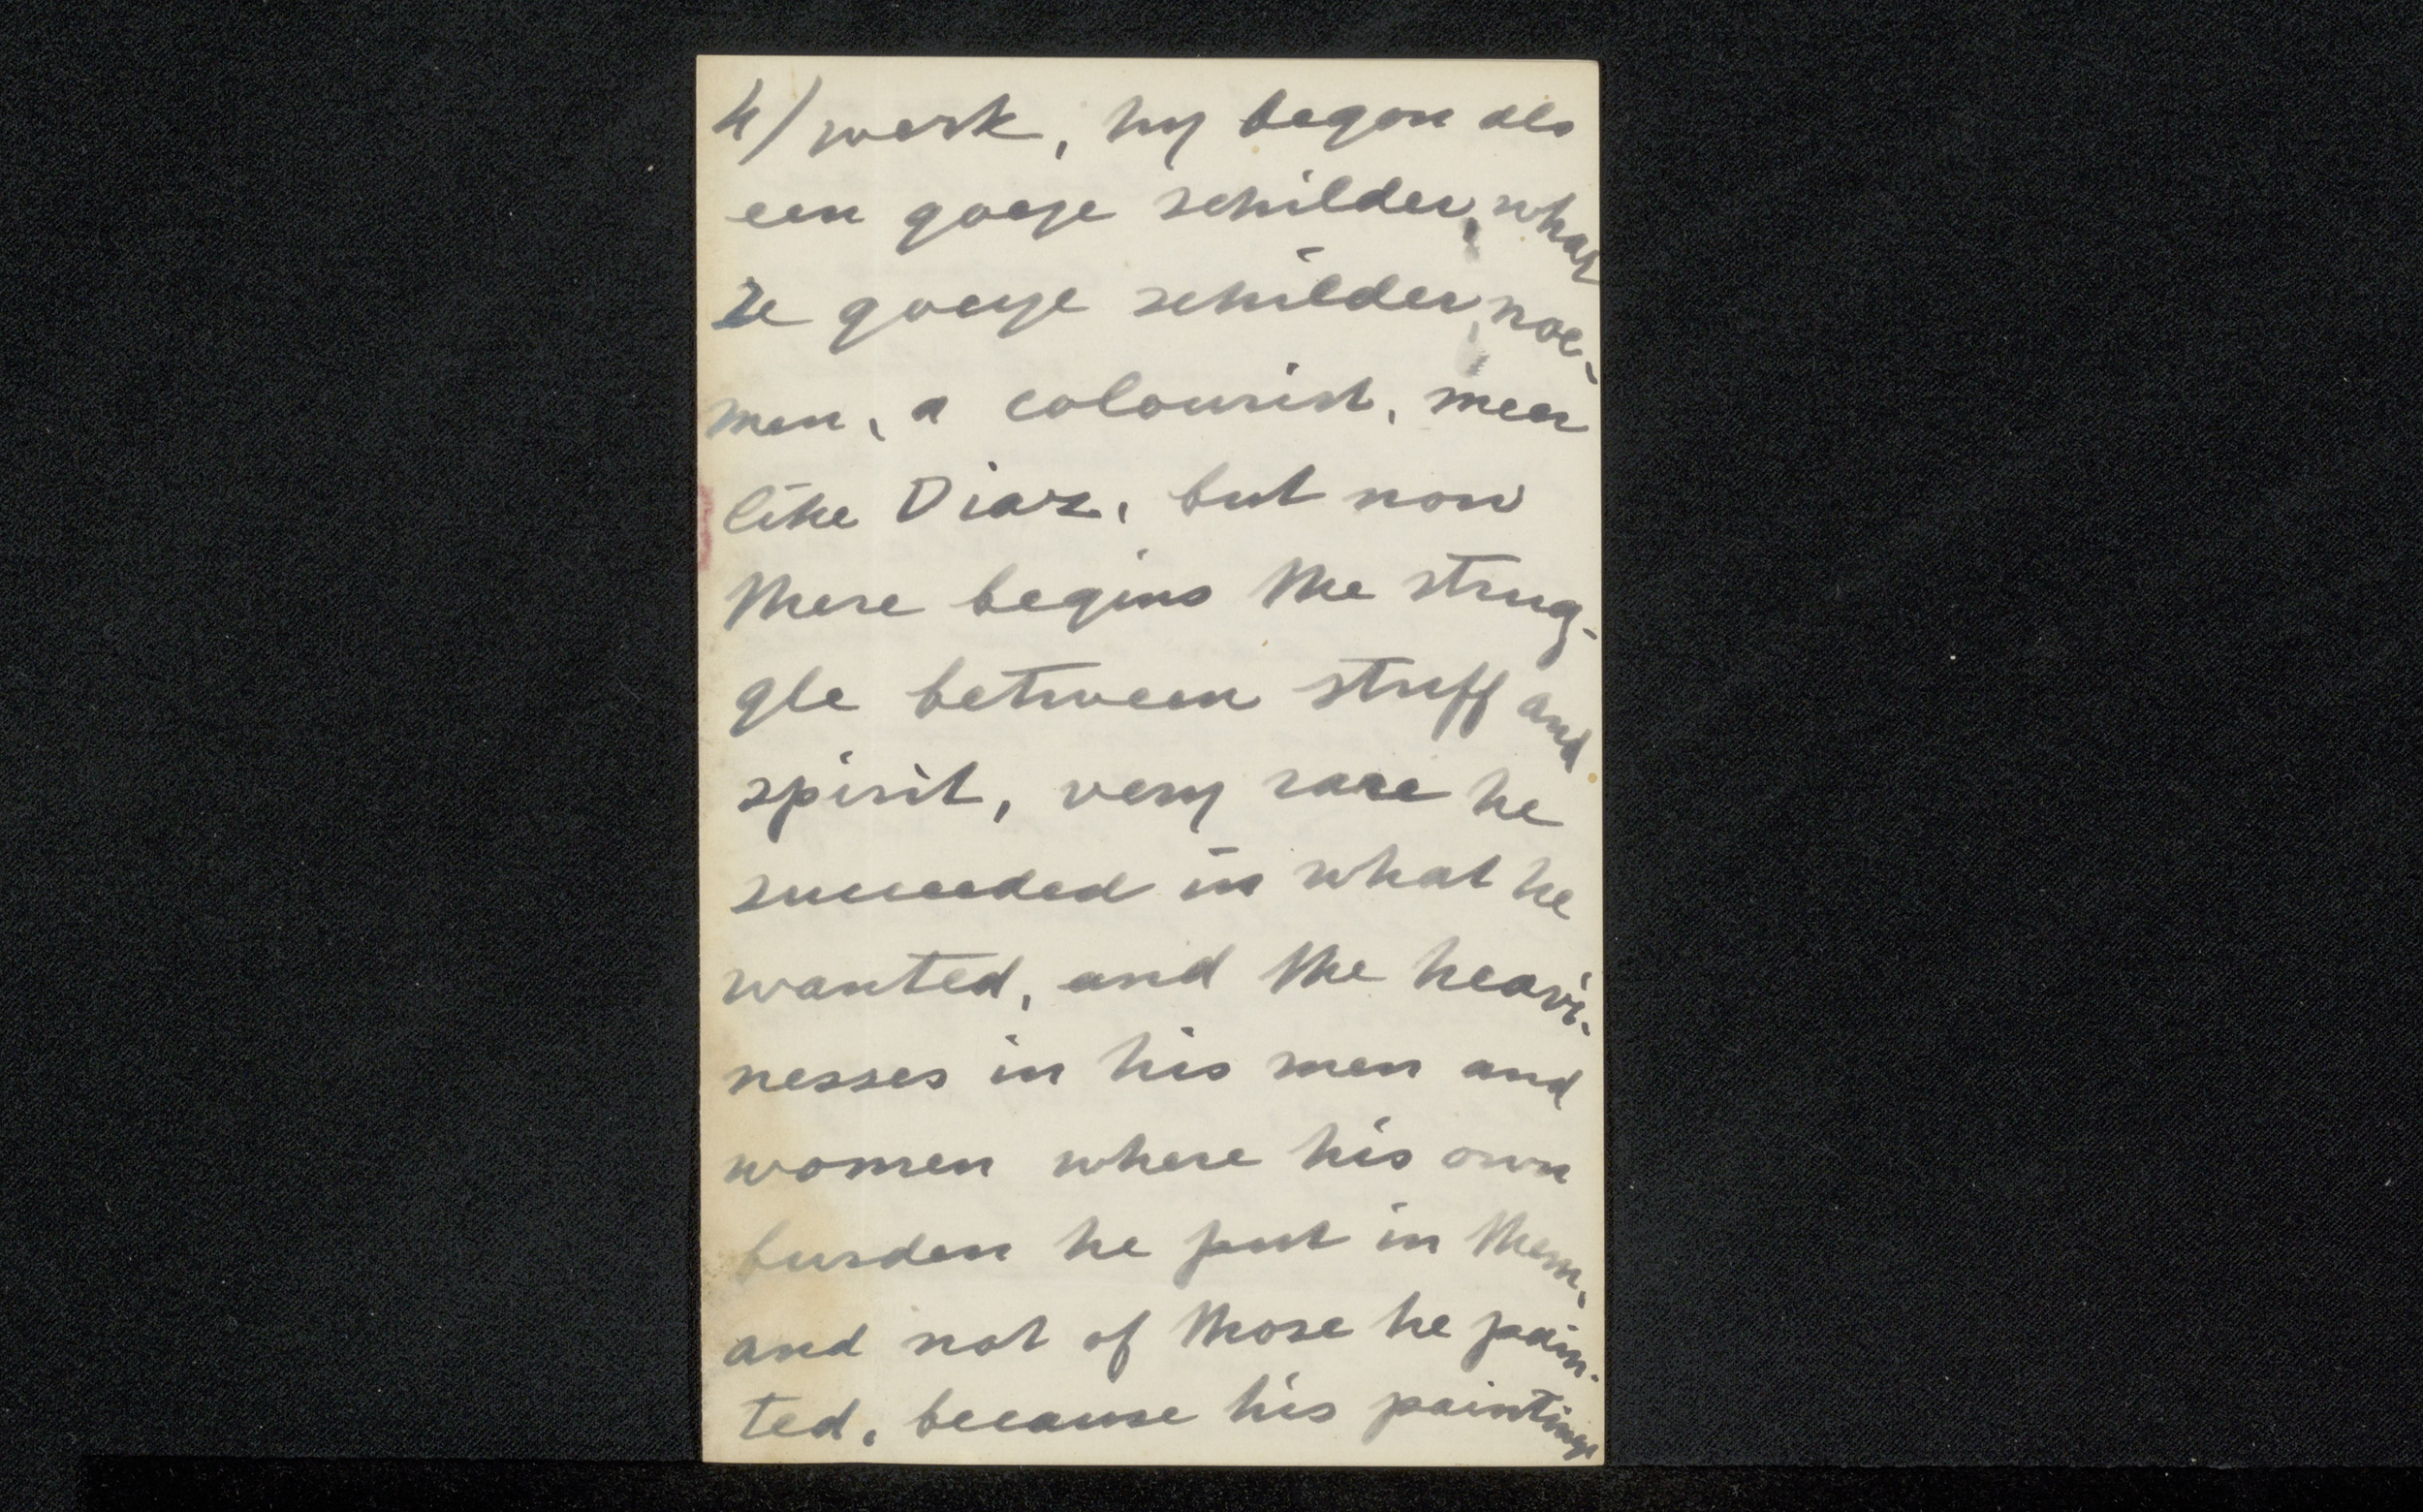 4/ werk, hy begon als
een goeje schilder, what
ze goeye schilder noe-
men, a colourist, meer
like Diaz, but now
there begins the strug-
gle between stuff and
spirit, very rare he
succeeded in what he
wanted, and the heavi-
nesses in his men and
women where his own
burden he put in them,
and not of those he pain-
ted, because his paintings